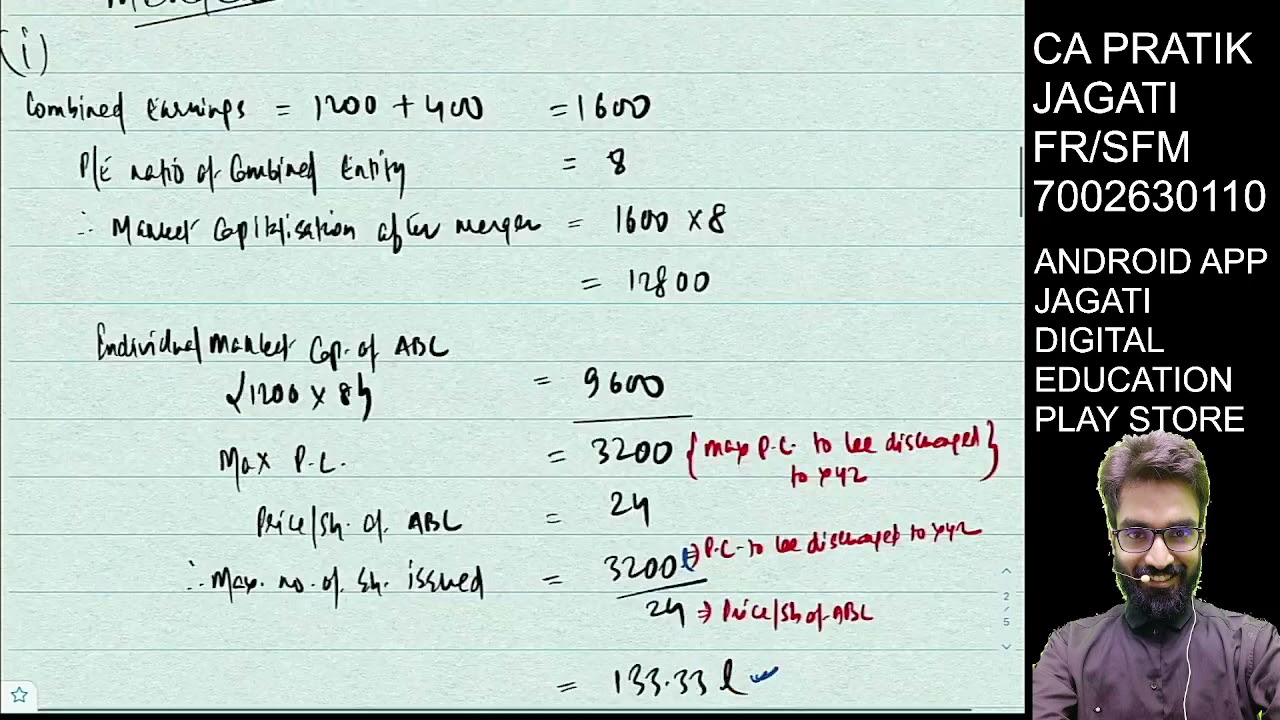 (i)
Combined earnings = 1200 + 400 = 1600
P/E ratio of Combined Entity = 8
∴ Market Capitalisation after merger = 1600 × 8
= 12800
Individual market Cap. of ABC
{1200 × 8} = 9600
Max P.C. = 3200 {max P.C. to be discharged
to XYZ
Price/Sh. of ABC = 24
∴ Max. no. of sh. issued = 3200 l ⇒ P.C. to be discharged to XYZ
24 ⇒ Price/Sh of ABC
= 133.33 l
2
/
5
CA PRATIK
JAGATI
FR/SFM
7002630110
ANDROID APP
JAGATI
DIGITAL
EDUCATION
PLAY STORE